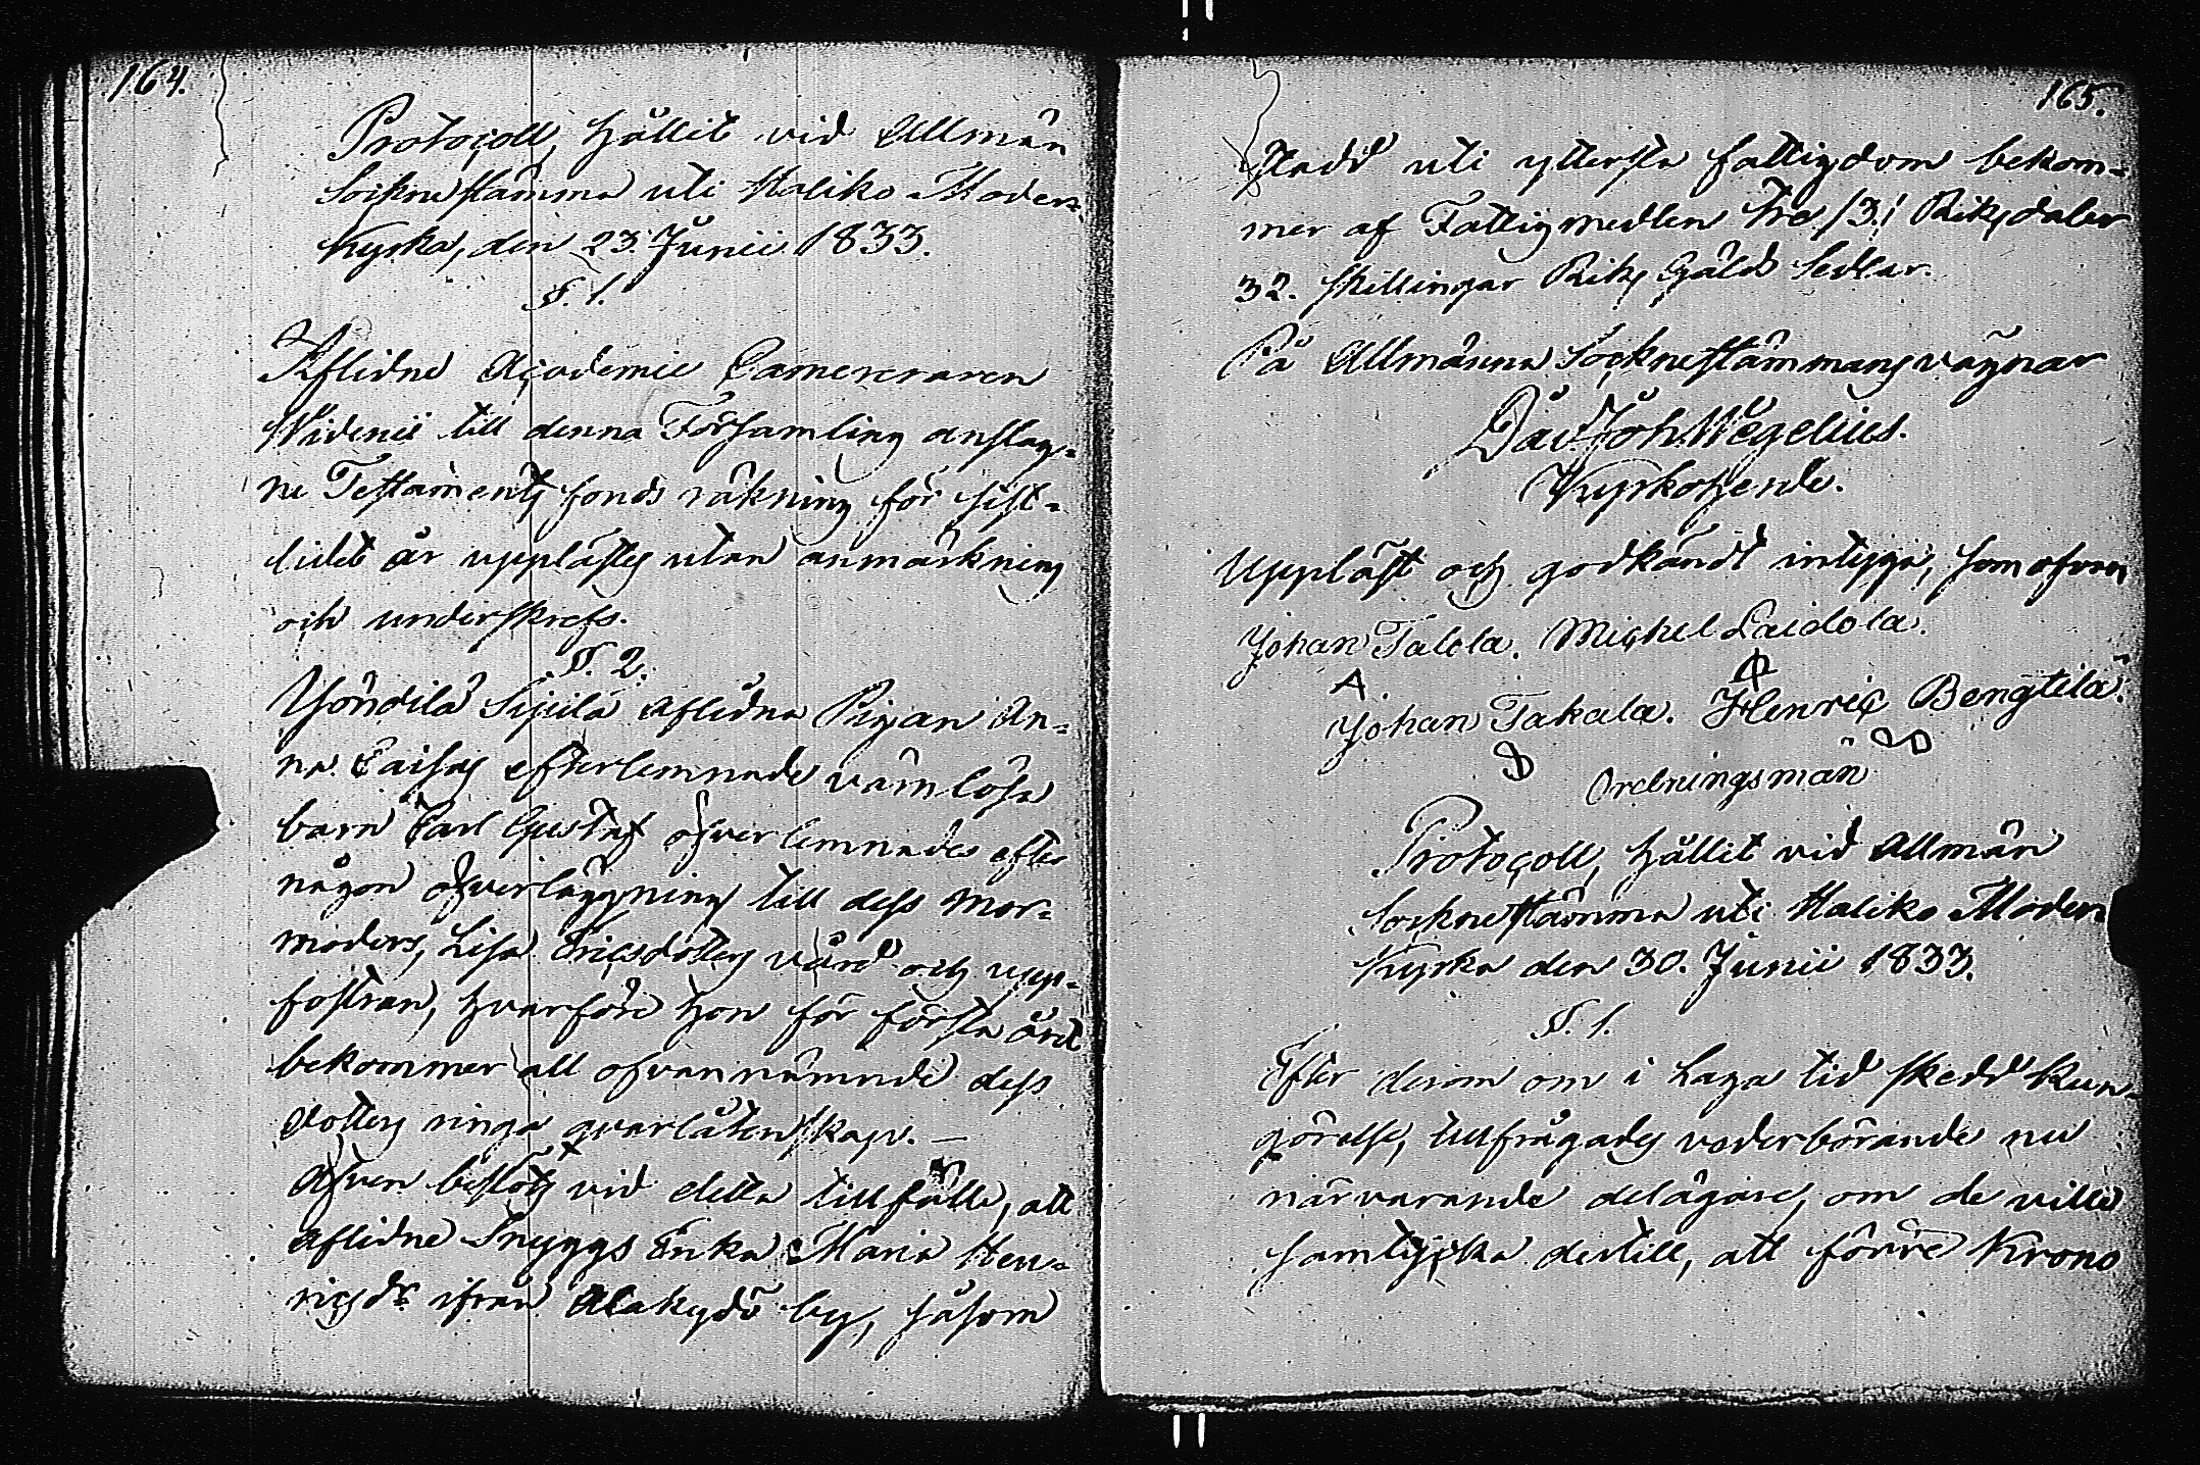 164.
Protocoll, hållit vid Allmän
Socknestämma uti Haliko Moder-
Kyrka, den 23. Junii 1833.
§. 1.
Aflidne Academie Camereraren
Widenii till denna Församling anslag-
ne Testaments fonds räkning för sist-
lidet år upplästes utan anmärkning
och underskrefs.
§. 2.
Yöndilä Sipilä aflidna Pigan An-
na Caisas efterlemnade värnlösa
barn Carl Gustaf öfverlemnades efter
någon öfverläggning till dess Mor-
moders, Lisa Ericsdotters vård och upp-
fostran, hvarföre hon för första året
bekommer all ofvannämnde dess
dotters ringa qvarlåtenskap. —
Äfven beslöts vid detta tillfälle, att
aflidne Snyggs Enka Maria Hen-
ricsdr ifrån Alakydö by, såsom
165.
stadd uti yttersta fattigdom bekom-
mer af Fattigmedlen tre /3/ Riksdaler
32. skillingar Riks Gälds Sedlar.
På Allmänna Socknestämmans vägnar
Dav. Joh. Wegelius.
Kyrkoherde.
Uppläst och godkändt intyga, som ofvan
Johan Talola. Michel Laidola.
A
Johan Takala. Henric Bengtilä.
Ordningsmän
Protocoll, hållit vid Allmän
Socknestämma uti Haliko Moder
Kyrka den 30. Junii 1833.
§. 1.
Efter derom om i Laga tid skedd kun-
görelse, tillfrågades vederbörande nu
närvarande delägare, om de ville
samtycka dertill, att förre Krono